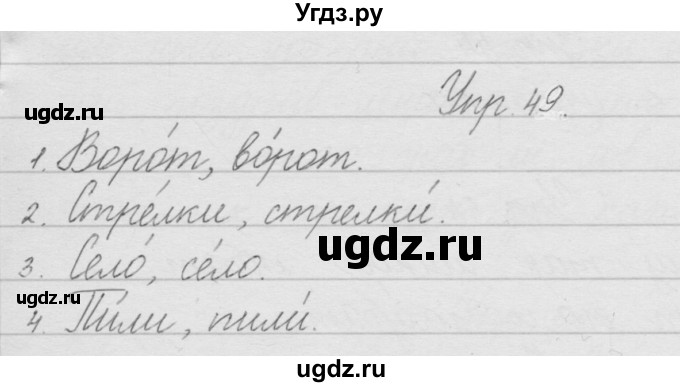 Угдз.ру
Упр. 49.
ugdz.ru
1. Воро́т, во́рот.
ugdz.ru
2. Стре́лки, стрелки́.
ugdz.ru
3. Село́, се́ло.
ugdz.ru
4. Пи́ли, пили́.
ugdz.ru